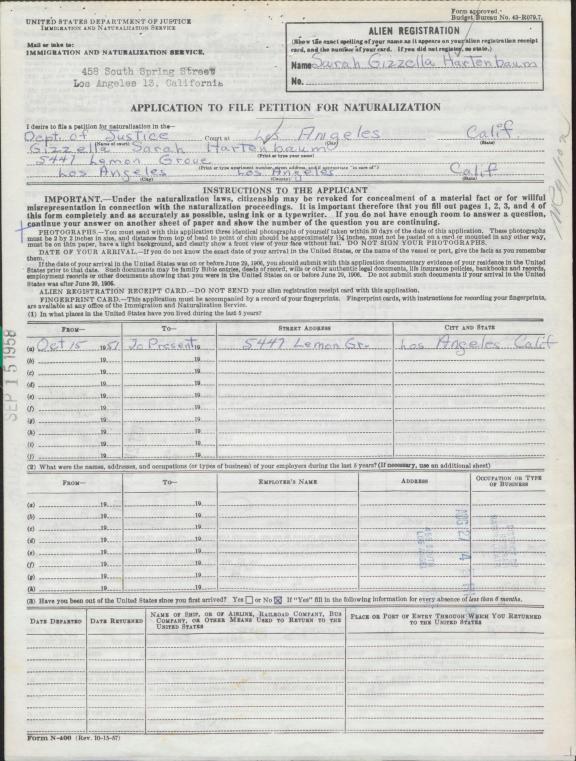 Form approved.
Budget Bureau No. 43-R079.7.
UNITED STATES DEPARTMENT OF JUSTICE
IMMIGRATION AND NATURALIZATION SERVICE
Mail or take to:
IMMIGRATION AND NATURALIZATION SERVICE,
458 South Spring Street
Los Angeles 13, California
ALIEN REGISTRATION
(Show the exact spelling of your name as it appears on your alien registration receipt
card, and the number of your card. If you did not register, so state.)
Name Sarah Gizzella Hartenbaum
No.
APPLICATION TO FILE PETITION FOR NATURALIZATION
I desire to file a petition for naturalization in the—
Dept. of Justice Court at Los Angeles Calif.
(Name of court) (City) (State)
Gizzella Sarah Hartenbaum
(Print or type your name)
5447 Lemon Grove
(Print or type apartment number, street address, and if appropriate "in care of")
Los Angeles Los Angeles Calif
(City) (County) (State)
INSTRUCTIONS TO THE APPLICANT
IMPORTANT.—Under the naturalization laws, citizenship may be revoked for concealment of a material fact or for willful
misrepresentation in connection with the naturalization proceedings. It is important therefore that you fill out pages 1, 2, 3, and 4 of
this form completely and as accurately as possible, using ink or a typewriter. If you do not have enough room to answer a question,
continue your answer on another sheet of paper and show the number of the question you are continuing.
PHOTOGRAPHS.—You must send with this application three identical photographs of yourself taken within 30 days of the date of this application. These photographs
must be 2 by 2 inches in size, and distance from top of head to point of chin should be approximately 1¼ inches, must not be pasted on a card or mounted in any other way,
must be on thin paper, have a light background, and clearly show a front view of your face without hat. DO NOT SIGN YOUR PHOTOGRAPHS.
DATE OF YOUR ARRIVAL.—If you do not know the exact date of your arrival in the United States, or the name of the vessel or port, give the facts as you remember
them.
If the date of your arrival in the United States was on or before June 29, 1906, you should submit with this application documentary evidence of your residence in the United
States prior to that date. Such documents may be family Bible entries, deeds of record, wills or other authentic legal documents, life insurance policies, bankbooks and records,
employment records or other documents showing that you were in the United States on or before June 29, 1906. Do not submit such documents if your arrival in the United
States was after June 29, 1906.
ALIEN REGISTRATION RECEIPT CARD.—DO NOT SEND your alien registration receipt card with this application.
FINGERPRINT CARD.—This application must be accompanied by a record of your fingerprints. Fingerprint cards, with instructions for recording your fingerprints,
are available at any office of the Immigration and Naturalization Service.
(1) In what places in the United States have you lived during the last 5 years?
FROM— TO— STREET ADDRESS CITY AND STATE
(a) Oct 15 1951 To Present 19 5447 Lemon Gr. Los Angeles Calif
(b) 19 19
(c) 19 19
(d) 19 19
(e) 19 19
(f) 19 19
(g) 19 19
(h) 19 19
(i) 19 19
(j) 19 19
SEP 15 1958
(2) What were the names, addresses, and occupations (or types of business) of your employers during the last 5 years? (If necessary, use an additional sheet)
FROM— TO— EMPLOYER'S NAME ADDRESS OCCUPATION OR TYPE OF BUSINESS
(a) 19 19
(b) 19 19
(c) 19 19
(d) 19 19
(e) 19 19
(f) 19 19
(g) 19 19
(h) 19 19
(3) Have you been out of the United States since you first arrived? Yes ☐ or No ☒ If "Yes" fill in the following information for every absence of less than 6 months.
DATE DEPARTED DATE RETURNED NAME OF SHIP, OR OF AIRLINE, RAILROAD COMPANY, BUS COMPANY, OR OTHER MEANS USED TO RETURN TO THE UNITED STATES PLACE OR PORT OF ENTRY THROUGH WHICH YOU RETURNED TO THE UNITED STATES
Form N-400 (Rev. 10-15-57)